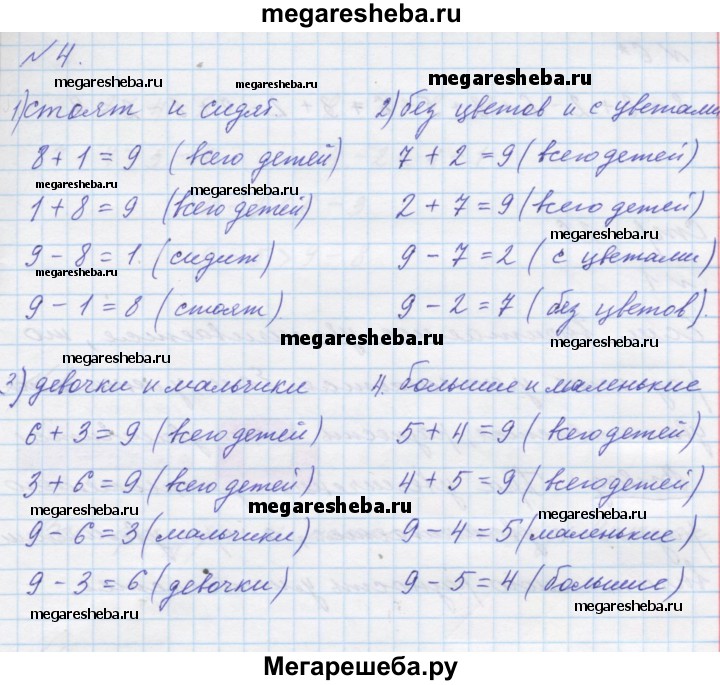 megaresheba.ru
№ 4.
megaresheba.ru megaresheba.ru megaresheba.ru
1) стоят и сидят.
8 + 1 = 9 (всего детей)
megaresheba.ru
1 + 8 = 9 (всего детей)
9 - 8 = 1. (сидит)
megaresheba.ru
9 - 1 = 8 (стоят)
2) без цветов и с цветами
7 + 2 = 9 (всего детей)
megaresheba.ru
2 + 7 = 9 (всего детей)
megaresheba.ru
9 - 7 = 2 (с цветами)
9 - 2 = 7 (без цветов).
megaresheba.ru
megaresheba.ru
3) девочки и мальчики
6 + 3 = 9 (всего детей)
megaresheba.ru
3 + 6 = 9 (всего детей)
megaresheba.ru
9 - 6 = 3 (мальчики)
9 - 3 = 6 (девочки)
megaresheba.ru
4. большие и маленькие
5 + 4 = 9 (всего детей)
megaresheba.ru
4 + 5 = 9 (всего детей)
megaresheba.ru
9 - 4 = 5 (маленькие)
9 - 5 = 4 (большие)
megaresheba.ru
Мегарешеба.ру